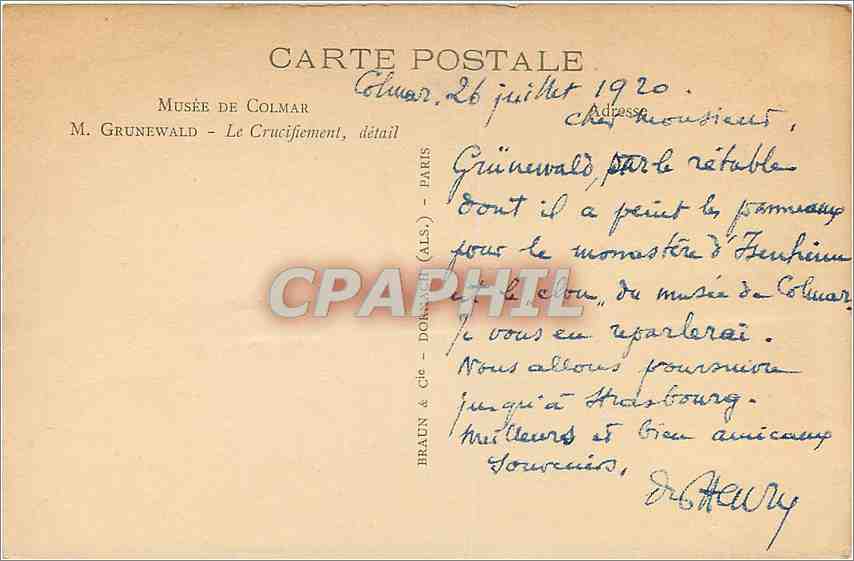 CARTE POSTALE
MUSÉE DE COLMAR
M. GRUNEWALD - Le Crucifiement, détail
BRAUN & Cie - DORNACH (ALS.) - PARIS
Adresse
Colmar, 26 juillet 1920.
Cher Monsieur,
Grünewald, par le rétable
dont il a peint les panneaux
pour le monastère d'Isenheim
est le „clou„ du musée de Colmar.
Je vous en reparlerai.
Nous allons poursuivre
jusqu'à Strasbourg.
Meilleurs et bien amicaux
souvenirs.
Henry
CPAPHIL